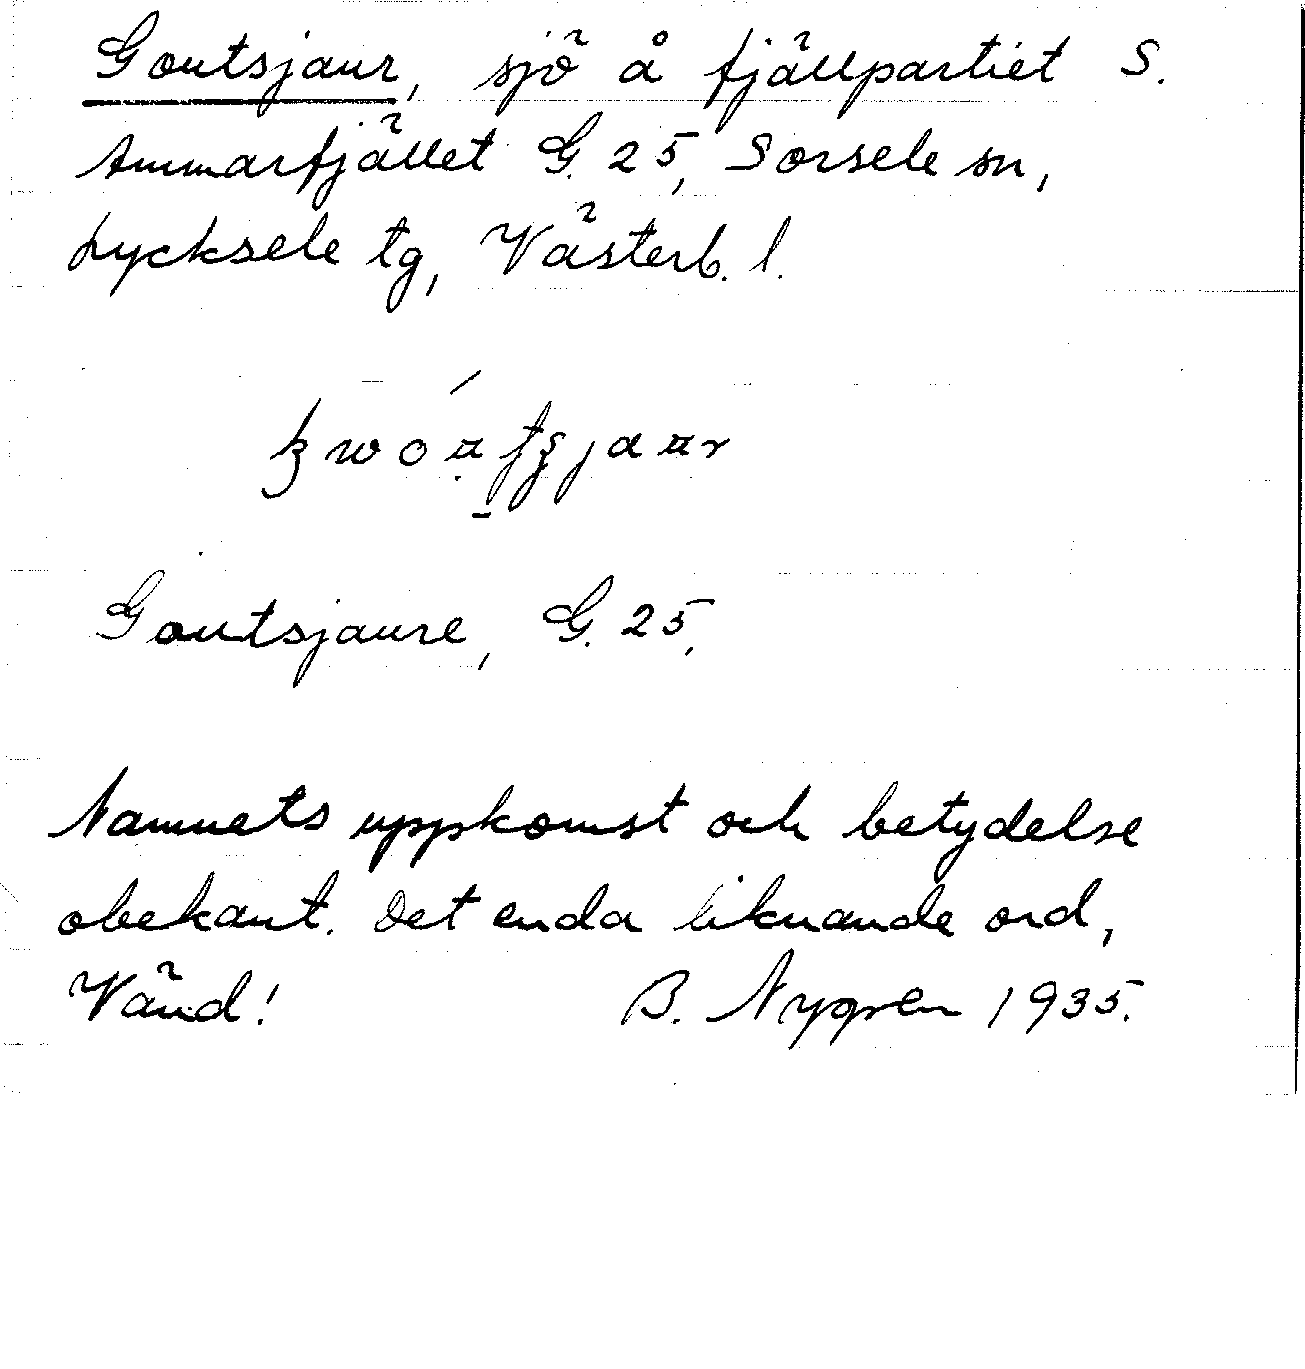 Goutsjaur, sjö å fjällpartiet S.
Ammarfjället G. 25, Sorsele sn,
Lycksele tg, Västerb. l.
Goutsjaure, G. 25.
Namnets uppkomst och betydelse
obekant. Det enda liknande ord,
Vänd! B. Nygren 1935.